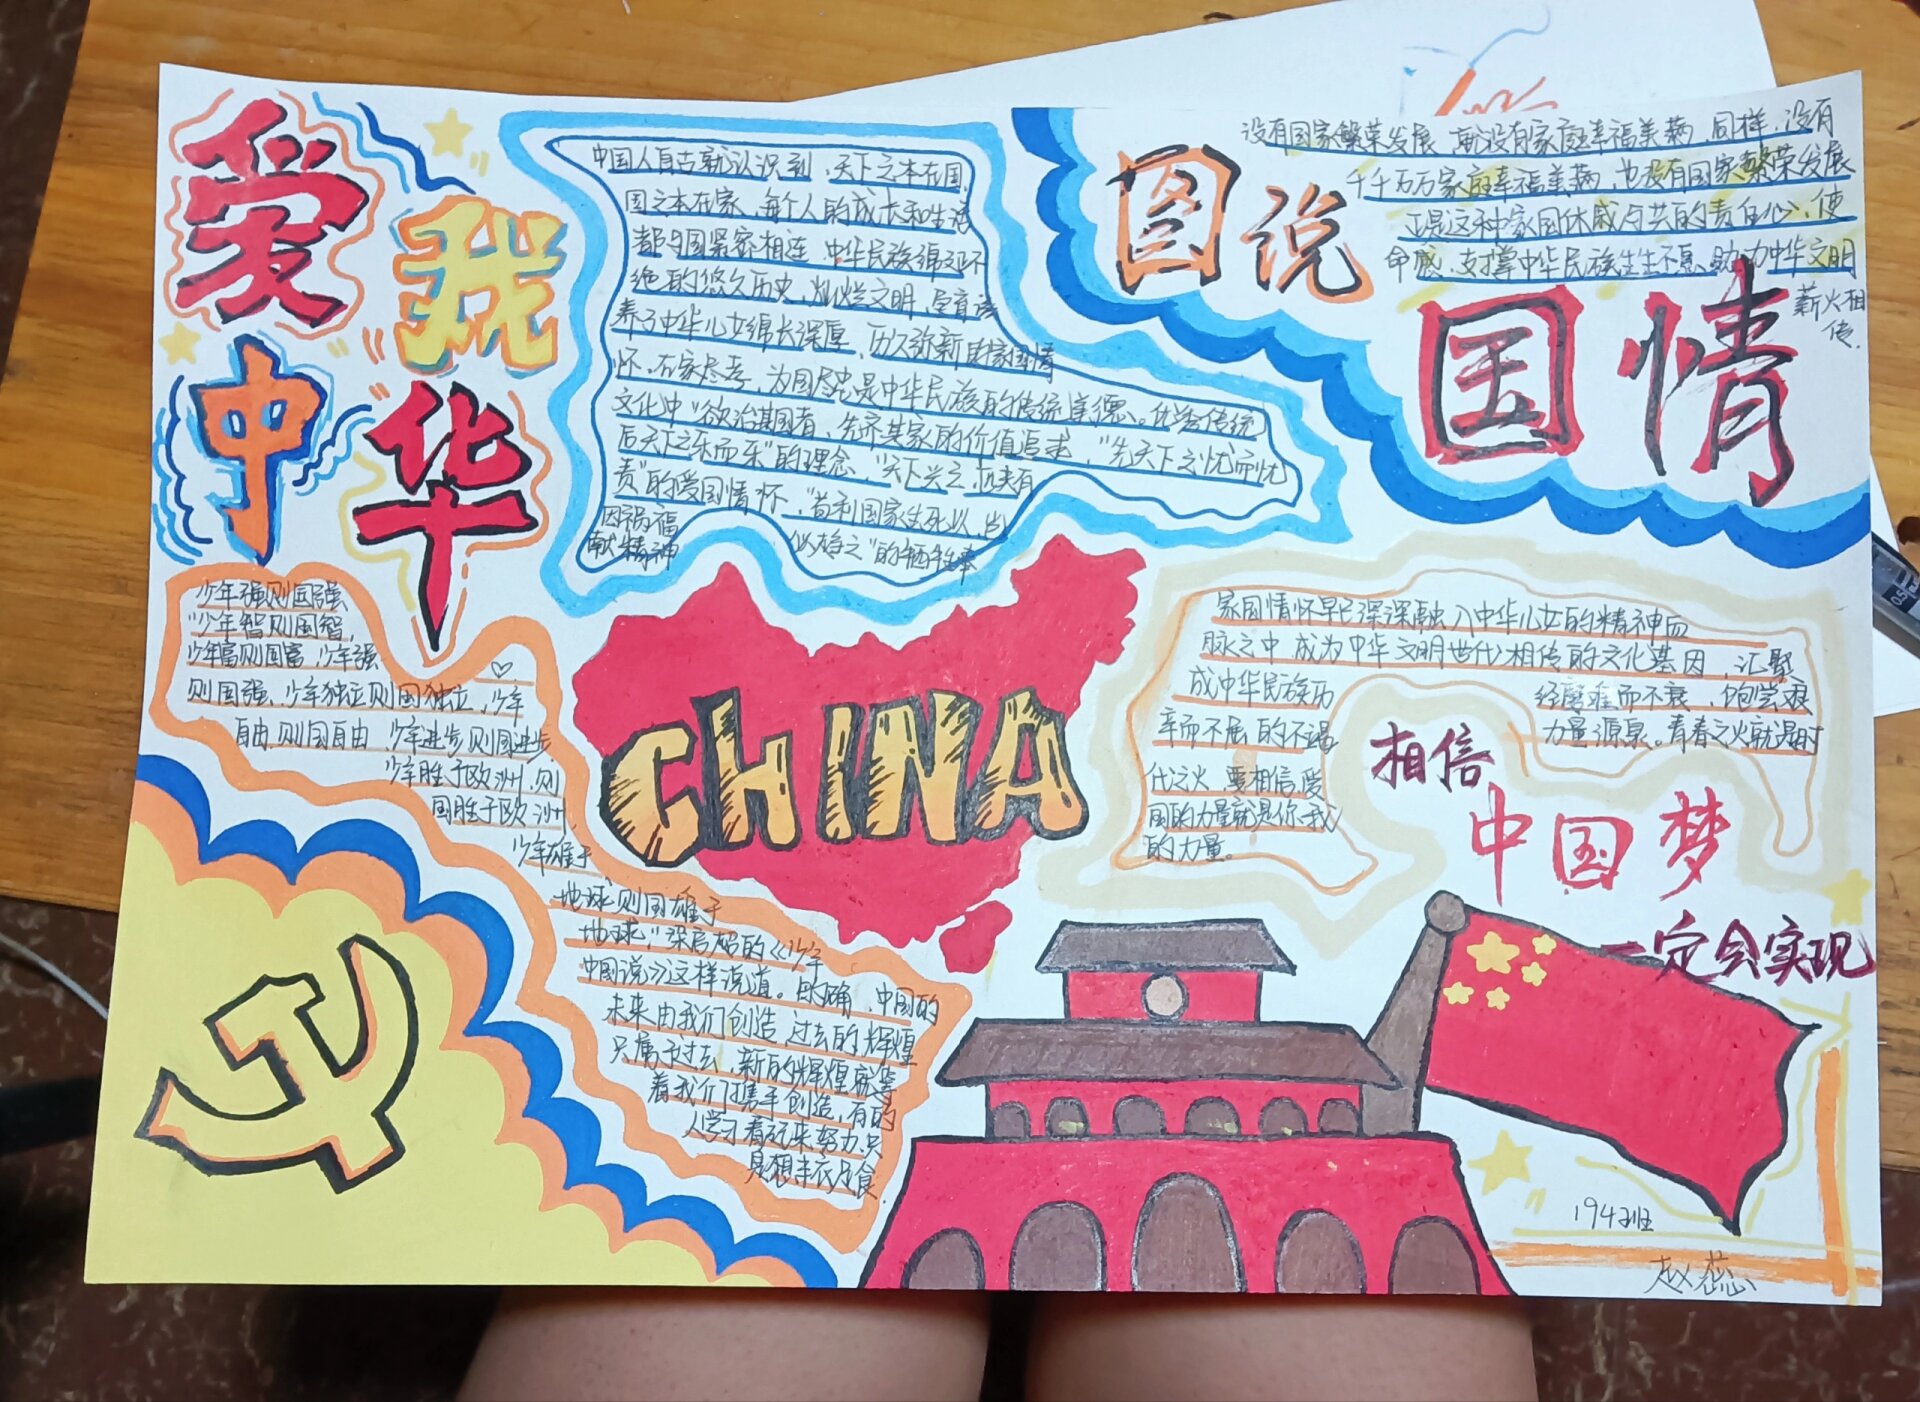 爱我
中华
中国人自古就认识到，天下之本在国，
国之本在家，每个人的成长和生活
都与国紧密相连，中华民族绵延不
绝的悠久历史，灿烂文明，
养了中华儿女绵长深厚，历久弥新的家国情
怀，在家尽孝，为国尽忠是中华民族的传统美德。优秀传统
文化中“欲治其国者，先齐其家的价值追求，“先天下之忧而忧
后天下之乐而乐”的理念，“天下兴亡，匹夫有
责”的爱国情怀，“苟利国家生死以，岂
因祸福
以趋之”的牺牲奉
献精神
图说
国情
没有国家繁荣发展，就没有家庭幸福美满，同样，没有
千千万万家庭幸福美满，也没有国家繁荣发展
正是这种家国休戚与共的责任心，使
命感，支撑中华民族生生不息、助力中华文明
薪火相
传.
少年强则国强
“少年智则国智，
少年富则国富，少年强
则国强、少年独立则国独立，少年
自由，则国自由，少年进步则国进步
少年胜于欧洲，则
国胜于欧洲，
少年雄于
地球则国雄于
地球，”梁启超的《少年
中国说》这样说道。的确，中国的
未来由我们创造，过去的辉煌
只属于过去，新的辉煌就等
着我们携手创造，有的
人学习着起来努力，只
是想丰衣足食.
CHINA
家国情怀早已深深融入中华儿女的精神血
脉之中，成为中华文明世代相传的文化基因，汇聚
成中华民族历
经磨难而不衰，饱尝艰
辛而不屈的不竭
力量源泉。青春之火就是时
代之火，要相信，爱
国的力量就是你、我
的力量。
相信
中国梦
一定会实现
194班
赵蕊